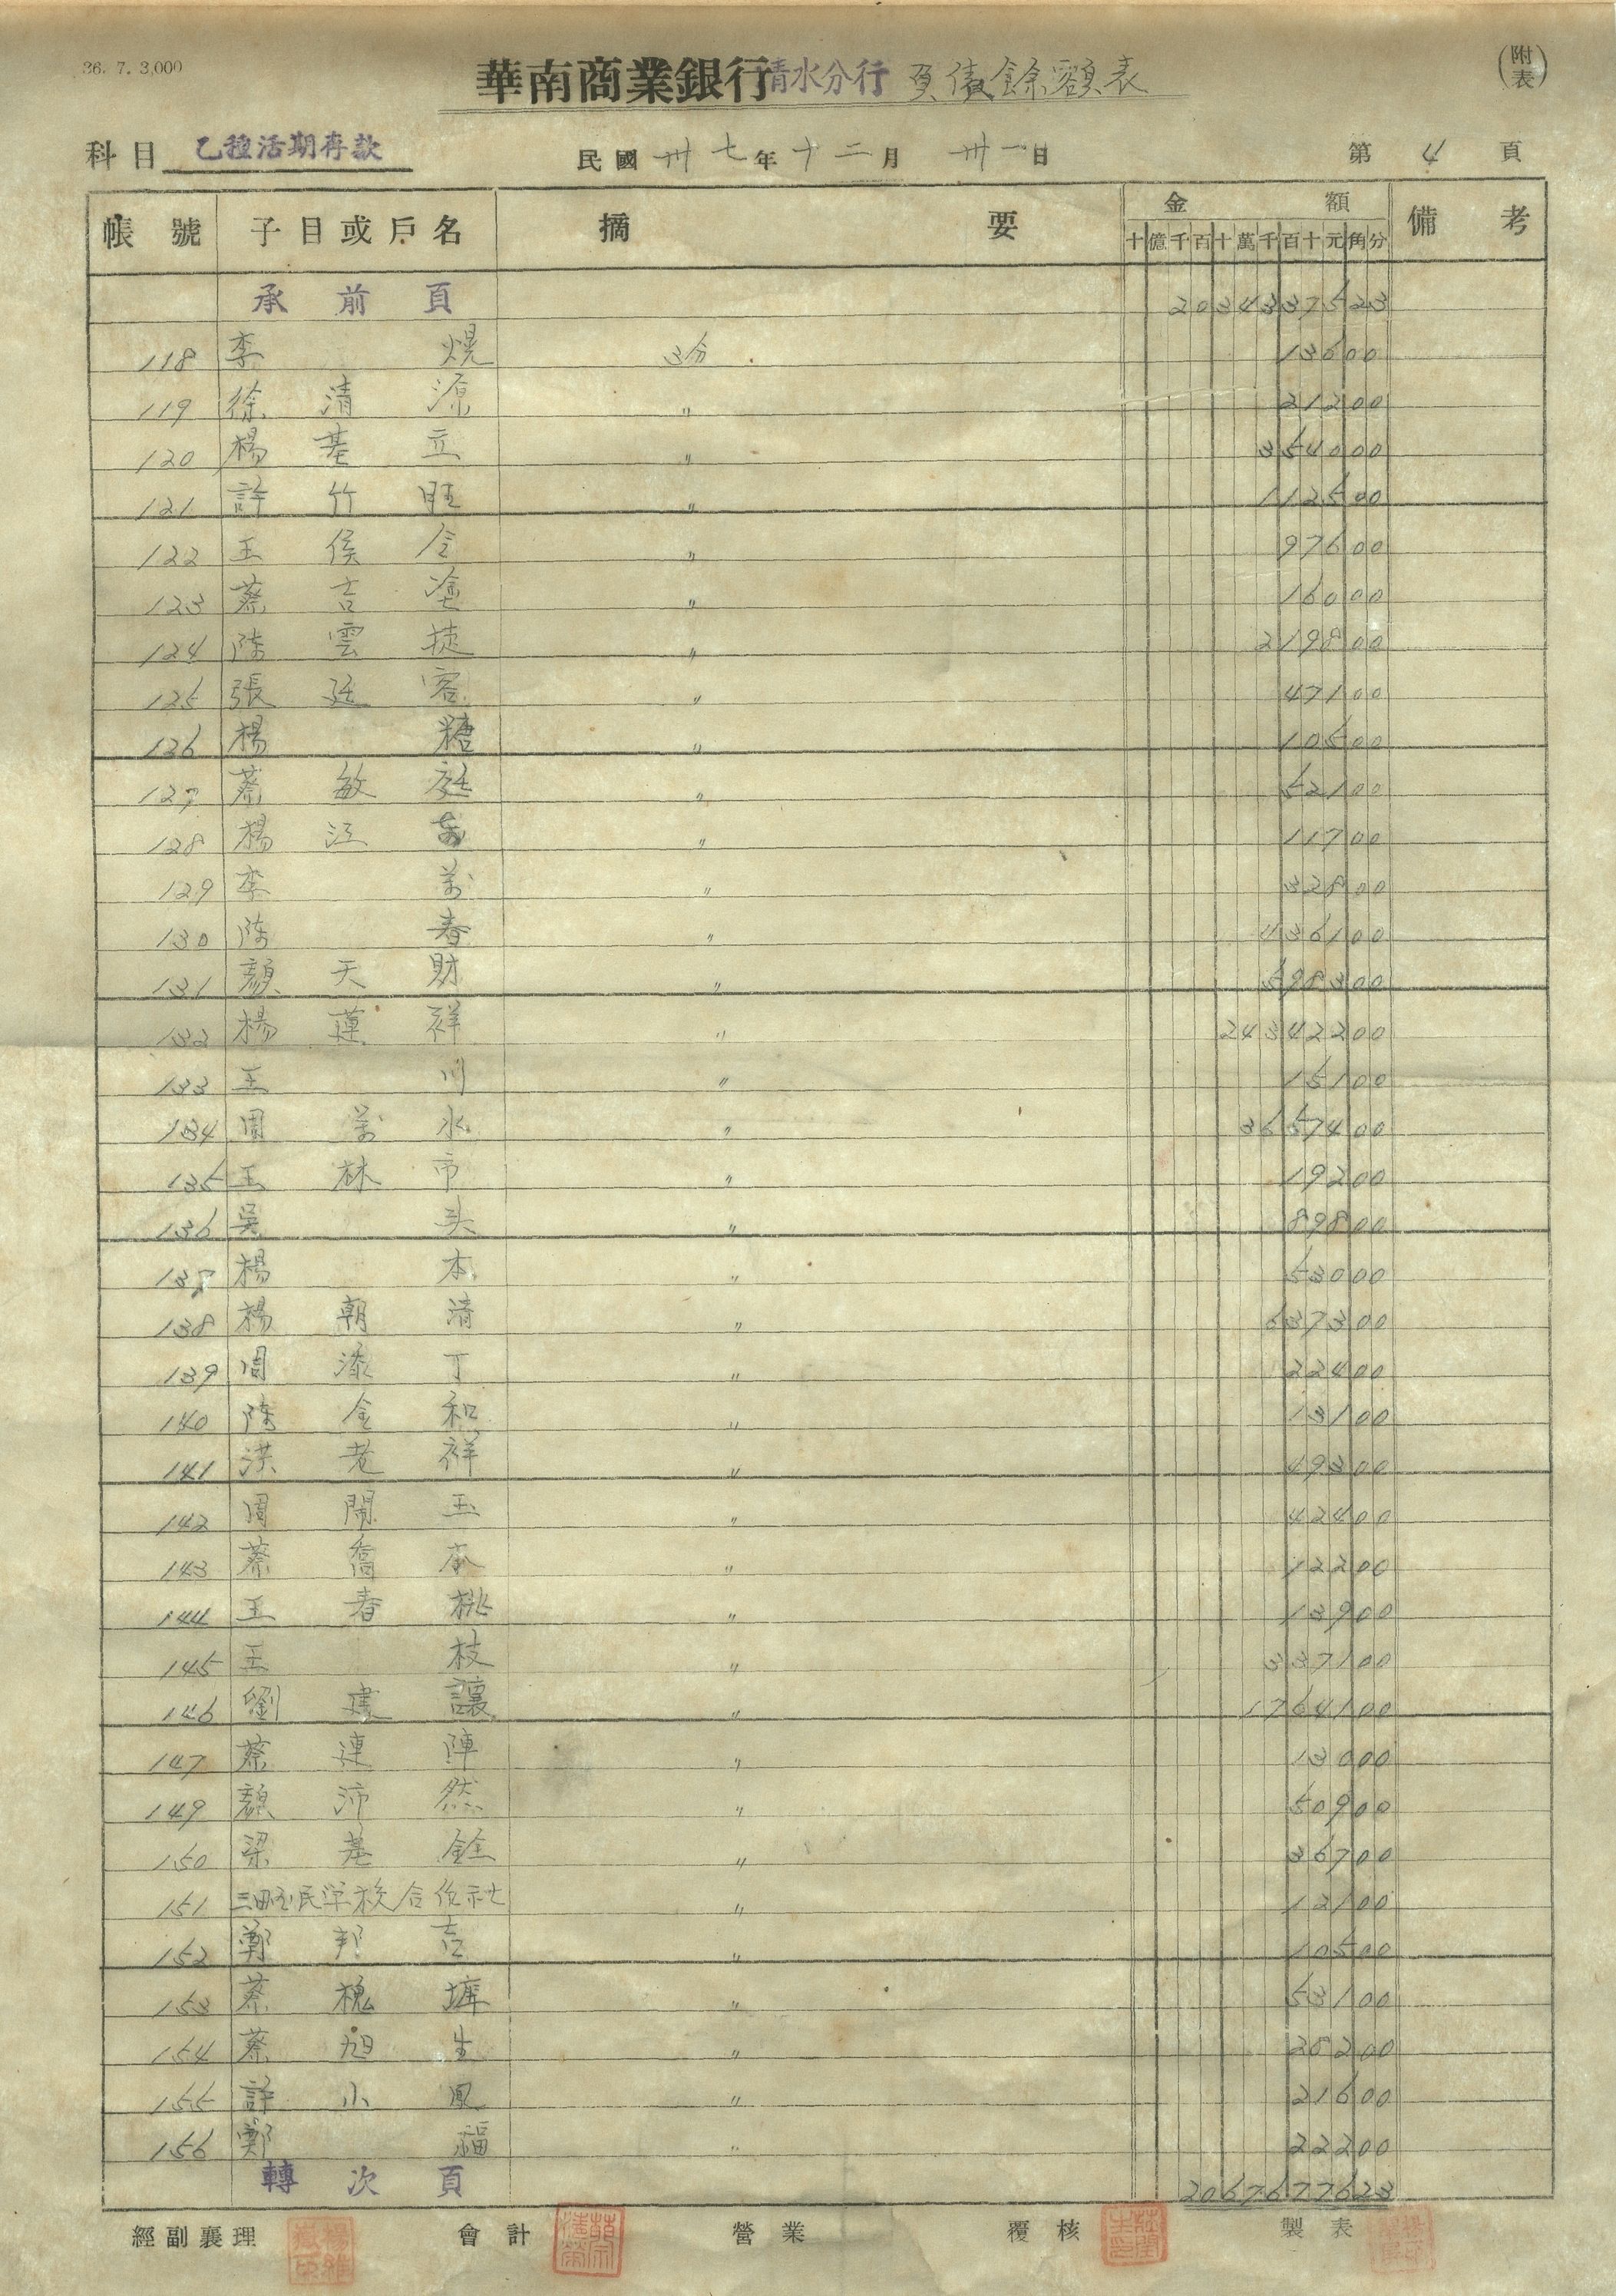 36. 7. 3,000
華南商業銀行清水分行 負債餘額表
(附表)
科目 乙種活期存款 民國 卅七年十二月卅一日 第 4 頁
帳號 子目或戶名 摘要 金額 備考
十億千百十萬千百十元角分
承前頁 2034337523
118 李 熀 3分 13600
119 徐清源 〃 21200
120 楊基立 〃 354000
121 許竹旺 〃 112500
122 王侯令 〃 97600
123 蔡吉塗 〃 16000
124 陳雲捷 〃 219800
125 張廷客 〃 47100
126 楊 糖 〃 10500
127 蔡敏庭 〃 52100
128 楊江 〃 11700
129 李 萬 〃 32800
130 陳 春 〃 436100
131 顏天財 〃 598300
132 楊蓮祥 〃 24342200
133 王 川 〃 15100
134 周萬水 〃 3657400
135 王林市 〃 19200
136 吳 头 〃 89800
137 楊 本 〃 53000
138 楊朝清 〃 637300
139 周添丁 〃 22400
140 陳金和 〃 13100
141 洪老祥 〃 49300
142 周開玉 〃 42400
143 蔡喬 〃 12200
144 王春桃 〃 13900
145 王 枝 〃 337100
146 劉建讓 〃 1764100
147 蔡連陣 〃 13000
149 顏沛然 〃 50900
150 梁基銓 〃 36700
151 三田國民学校合作社 〃 12100
152 鄭邦吉 〃 10500
153 蔡槐墀 〃 53100
154 蔡旭生 〃 28200
155 許小鳳 〃 21600
156 鄭 福 〃 22200
轉次頁 2067677623
經副襄理 會計 營業 覆核 製表